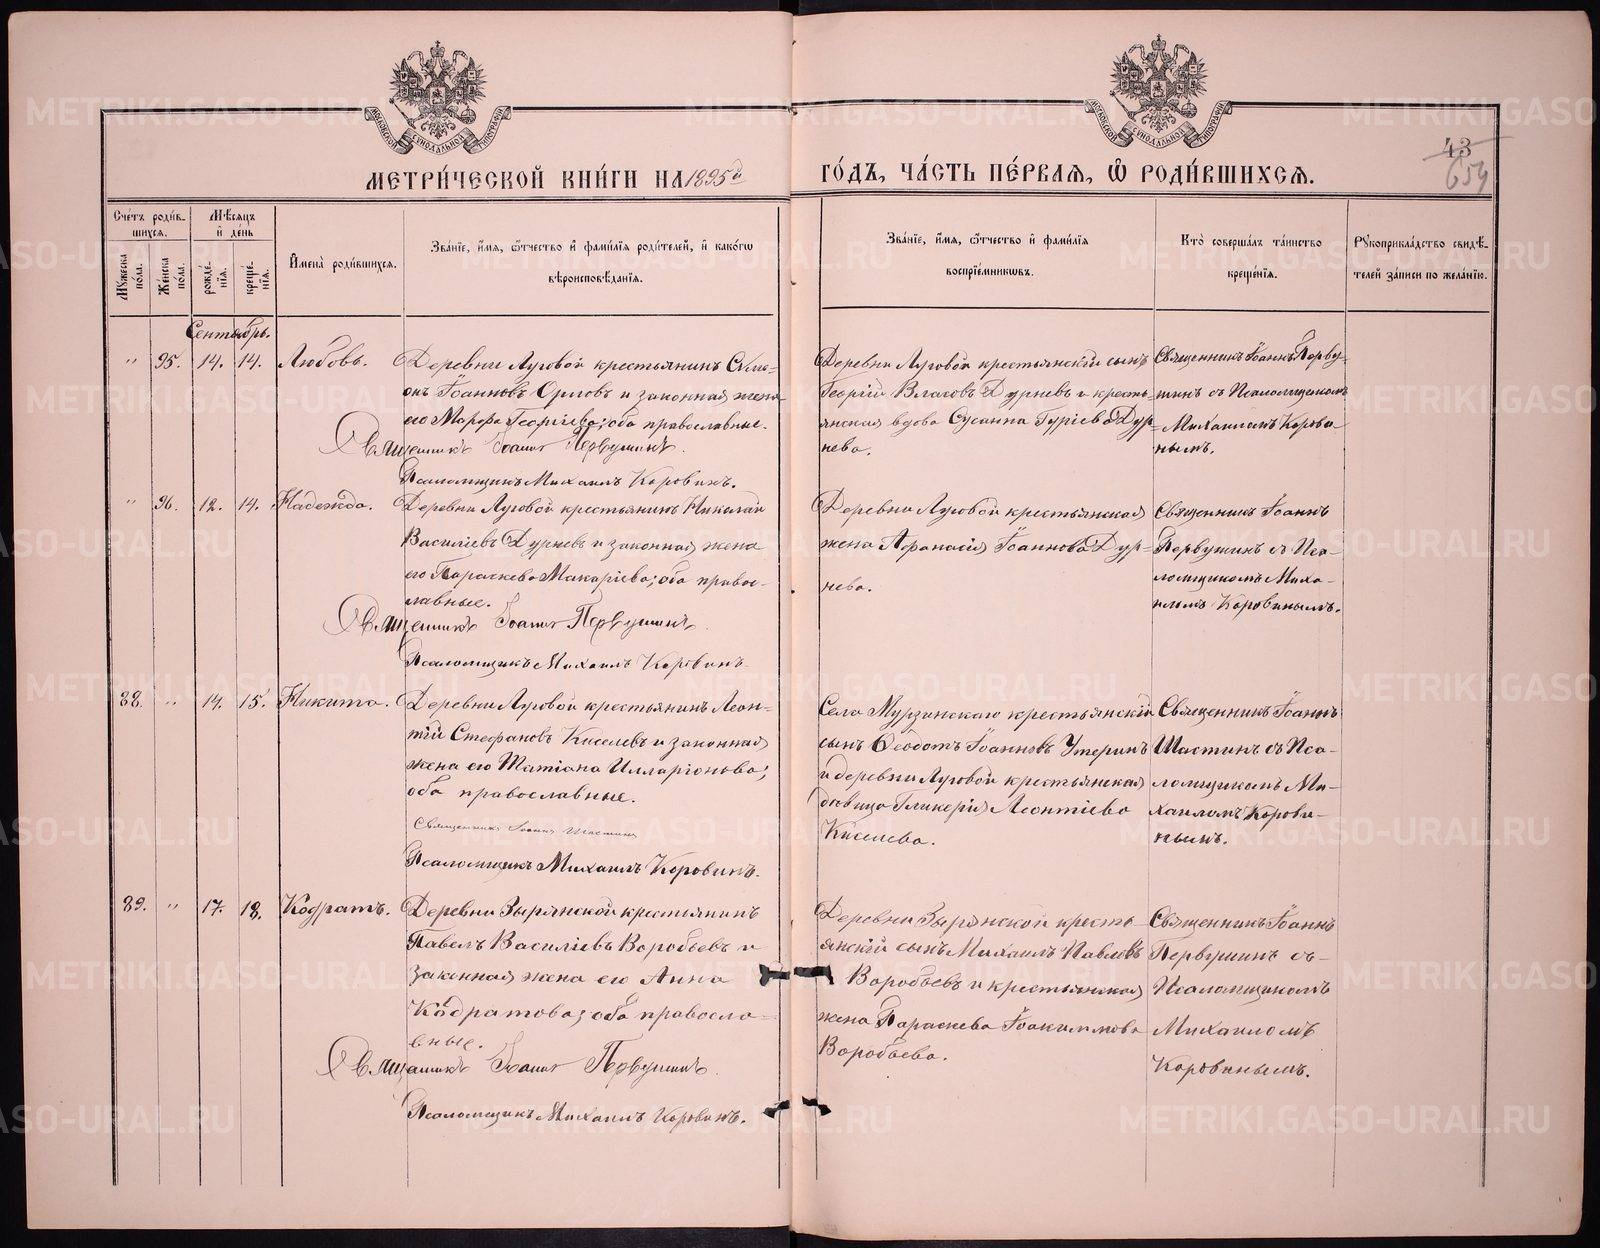 МЕТРИ́ЧЕСКОЙ КНИ́ГИ НА 1895й ГО́ДЪ, ЧА́СТЬ ПЕ́РВАЯ, Ѽ РОДИ́ВШИХСЯ.
43
654
Сче́тъ роди́в-
шихся.
Му́жеска по́ла.
Же́нска по́ла.
Мѣ́сяцъ
и҆ де́нь
рожде́нїя.
креще́нїя.
И҆мена̀ роди́вшихся.
Зва́нїе, и҆́мя, ѻ҆́тчество и҆ фами́лїя роди́телей, и҆ како́гѡ
вѣроисповѣ́данїя.
Зва́нїе, и҆́мя, ѻ҆́тчество и҆ фами́лїя
воспрїе́мниковъ.
Кто̀ соверша́лъ та́инство
креще́нїя.
Рукоприкла́дство свидѣ́-
телей за́писи по жела́нїю.
Сентябрь.
" 95. 14. 14. Любовь.
Деревни Луговой крестьянинъ Сѵме-
онъ Іоанновъ Орловъ и законная жена
его Марфа Георгіева; оба православные.
Священникъ Іоаннъ Первушинъ.
Псаломщикъ Михаилъ Коровинъ.
Деревни Луговой крестьянскій сынъ
Георгій Власовъ Дурневъ и кресть-
янская вдова Сусанна Гуріева Дур-
нева.
Священникъ Іоаннъ Перву-
шинъ съ Псаломщикомъ
Михаиломъ Корови-
нымъ.
" 96. 12. 14. Надежда.
Деревни Луговой крестьянинъ Николай
Василіевъ Дурневъ и законная жена
его Параскева Макаріева; оба право-
славные.
Священникъ Іоаннъ Первушинъ.
Псаломщикъ Михаилъ Коровинъ.
Деревни Луговой крестьянская
жена Афанасія Іоаннова Дур-
нева.
Священникъ Іоаннъ
Первушинъ съ Пса-
ломщикомъ Миха-
иломъ Коровинымъ.
88. " 14. 15. Никита.
Деревни Луговой крестьянинъ Леон-
тій Стефановъ Киселевъ и законная
жена его Татіана Илларіонова;
оба православные.
Священникъ Іоаннъ Шастинъ
Псаломщикъ Михаилъ Коровинъ.
Села Мурзинскаго крестьянскій
сынъ Ѳеодотъ Іоанновъ Утеринъ
и деревни Луговой крестьянская
дѣвица Гликерія Леонтіева
Киселева.
Священникъ Іоаннъ
Шастинъ съ Пса-
ломщикомъ Ми-
хаиломъ Корови-
нымъ.
89. " 17. 18. Кодратъ.
Деревни Зырянской крестьянинъ
Павелъ Василіевъ Воробьевъ и
законная жена его Анна
Кодратова; оба правосла-
вные.
Священникъ Іоаннъ Первушинъ.
Псаломщикъ Михаилъ Коровинъ.
Деревни Зырянской кресть-
янскій сынъ Михаилъ Павловъ
Воробьевъ и крестьянская
жена Параскева Іоакимова
Воробьева.
Священникъ Іоаннъ
Первушинъ съ
Псаломщикомъ
Михаиломъ
Коровинымъ.